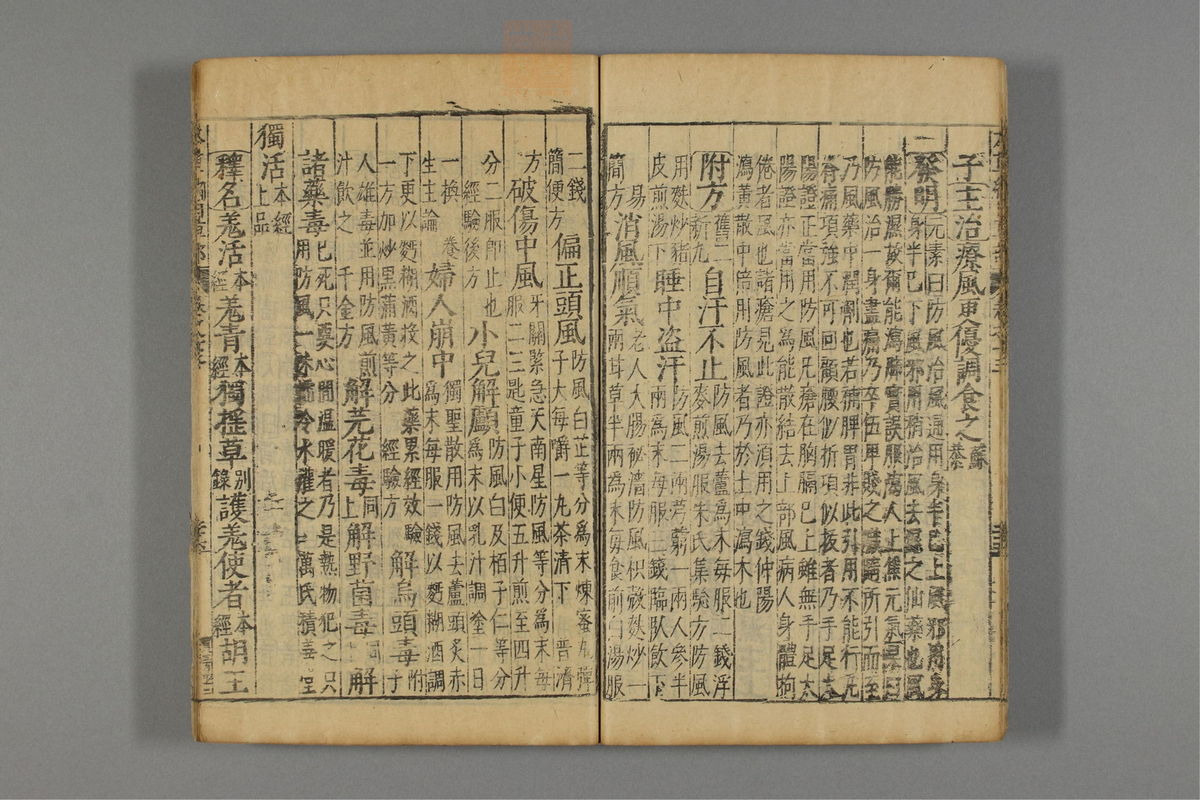 子主治療風更優調食之蘇恭
發明元素曰防風治風通用身半已上風邪用身
身半已下風邪用梢治風去濕之仙藥也風
能勝濕故爾能瀉肺實誤服瀉人上焦元氣杲曰
防風治一身盡痛乃卒伍卑賤之職隨所引而至
乃風藥中潤劑也若補脾胃非此引用不能行凡
脊痛項強不可回顧腰似折項似拔者乃手足太
陽證正當用防風凡瘡在胸膈已上雖無手足太
陽證亦當用之為能散結去上部風病人身體拘
倦者風也諸瘡見此證亦須用之錢仲陽
瀉黃散中倍用防風者乃於土中瀉木也
附方舊二新九自汗不止防風去蘆為末每服二錢浮
麥煎湯服朱氏集驗方防風
用麩炒豬
皮煎湯下睡中盜汗防風二兩芎藭一兩人參半
兩為末每服三錢臨臥飲下
易
簡方消風順氣老人大腸秘澀防風枳殼麩炒一
兩甘草半兩為末每食前白湯服
二錢
簡便方偏正頭風防風白芷等分為末煉蜜丸彈
子大每嚼一丸茶清下普濟
方破傷中風牙關緊急天南星防風等分為末每
服二三匙童子小便五升煎至四升
分二服即止也
經驗後方小兒解顱防風白及栢子仁等分
為末以乳汁調塗一日
一換養
生主論婦人崩中獨聖散用防風去蘆頭炙赤
為末每服一錢以麪糊酒調
下更以麪糊酒投之此藥累經效驗
一方加炒黑蒲黃等分經驗方解烏頭毒附
子
人雄毒並用防風煎
汁飲之千金方解芫花毒同上解野菌毒同上解
諸藥毒已死只要心間溫暖者乃是熱物犯之只
用防風一味擂冷水灌之萬氏積善堂
獨活本經上品
釋名羌活本經羌青本經獨搖草別錄護羌使者本經胡王